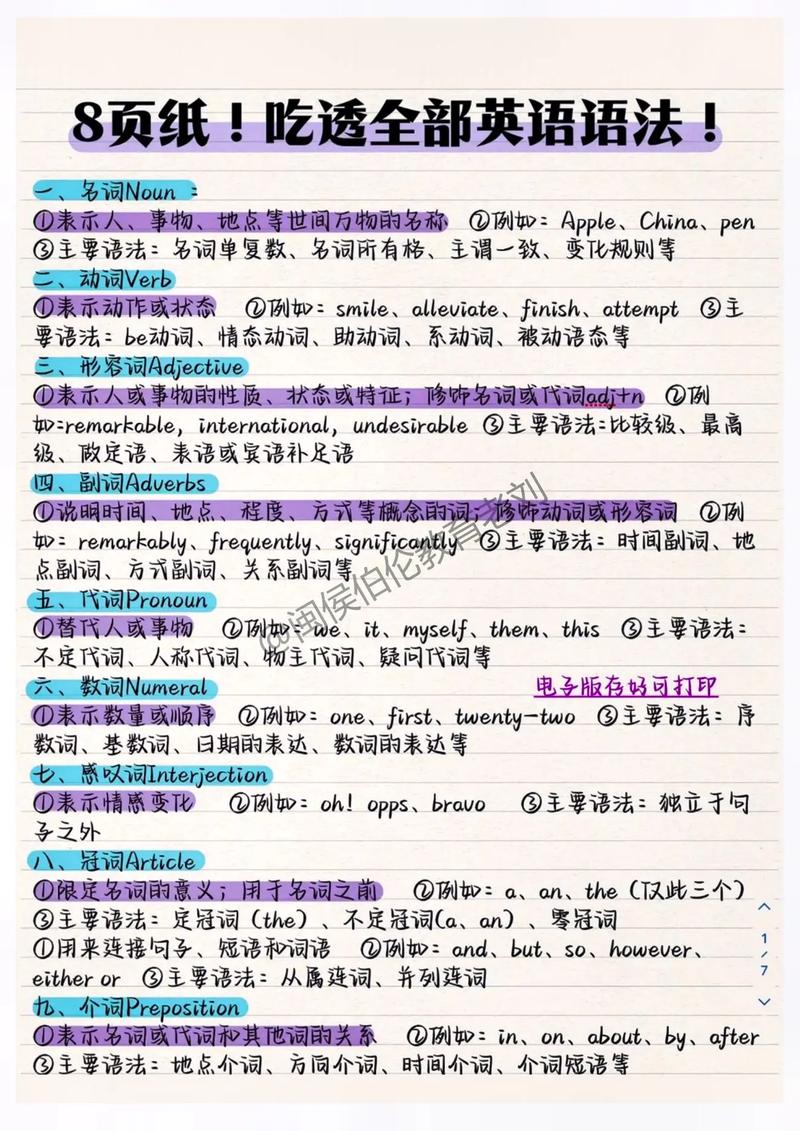 8页纸！吃透全部英语语法！
一、名词Noun：
①表示人、事物、地点等世间万物的名称 ②例如：Apple、China、pen
③主要语法：名词单复数、名词所有格、主谓一致、变化规则等
二、动词Verb
①表示动作或状态 ②例如：smile、alleviate、finish、attempt ③主
要语法：be动词、情态动词、助动词、系动词、被动语态等
三、形容词Adjective
①表示人或事物的性质、状态或特征；修饰名词或代词adj+n ②例
如:remarkable, international, undesirable ③主要语法:比较级、最高
级、做定语、表语或宾语补足语
四、副词Adverbs
①说明时间、地点、程度、方式等概念的词；修饰动词或形容词 ②例
如：remarkably、frequently、significantly ③主要语法：时间副词、地
点副词、方式副词、关系副词等
五、代词Pronoun
①替代人或事物 ②例如：we、it、myself、them、this ③主要语法：
不定代词、人称代词、物主代词、疑问代词等
六、数词Numeral
电子版存好可打印
①表示数量或顺序 ②例如：one、first、twenty-two ③主要语法：序
数词、基数词、日期的表达、数词的表达等
七、感叹词Interjection
①表示情感变化 ②例如：oh！opps、bravo ③主要语法：独立于句
子之外
八、冠词Article
①限定名词的意义；用于名词之前 ②例如：a、an、the（仅此三个）
③主要语法：定冠词（the）、不定冠词(a、an）、零冠词
①用来连接句子、短语和词语 ②例如：and、but、so、however、
either or ③主要语法：从属连词、并列连词
九、介词Preposition
①表示名词或代词和其他词的关系 ②例如：in、on、about、by、after
③主要语法：地点介词、方向介词、时间介词、介词短语等
@闽侯伯伦教育老刘
1
/
7